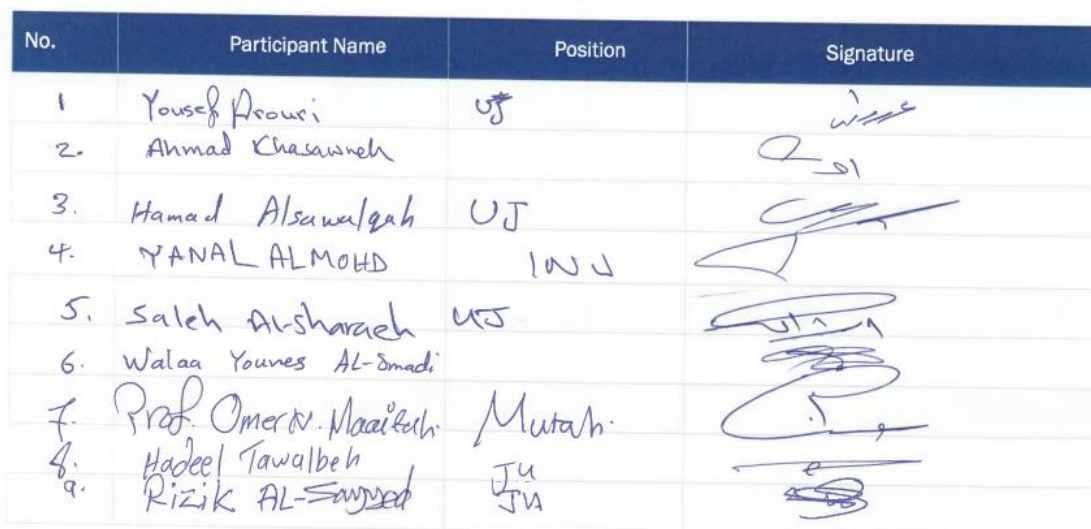 No. Participant Name Position Signature
1 Yousef Arouri UJ
2. Ahmad Khasawneh
3. Hamad Alsawalqah UJ
4. YANAL ALMOHD INJ
5. Saleh AL-sharaeh UJ
6. Walaa Younes AL-Smadi
7. Prof. Omer N. Maaitah. Mutah.
8. Hadeel Tawalbeh JU
9. Rizik AL-Sayyed JU